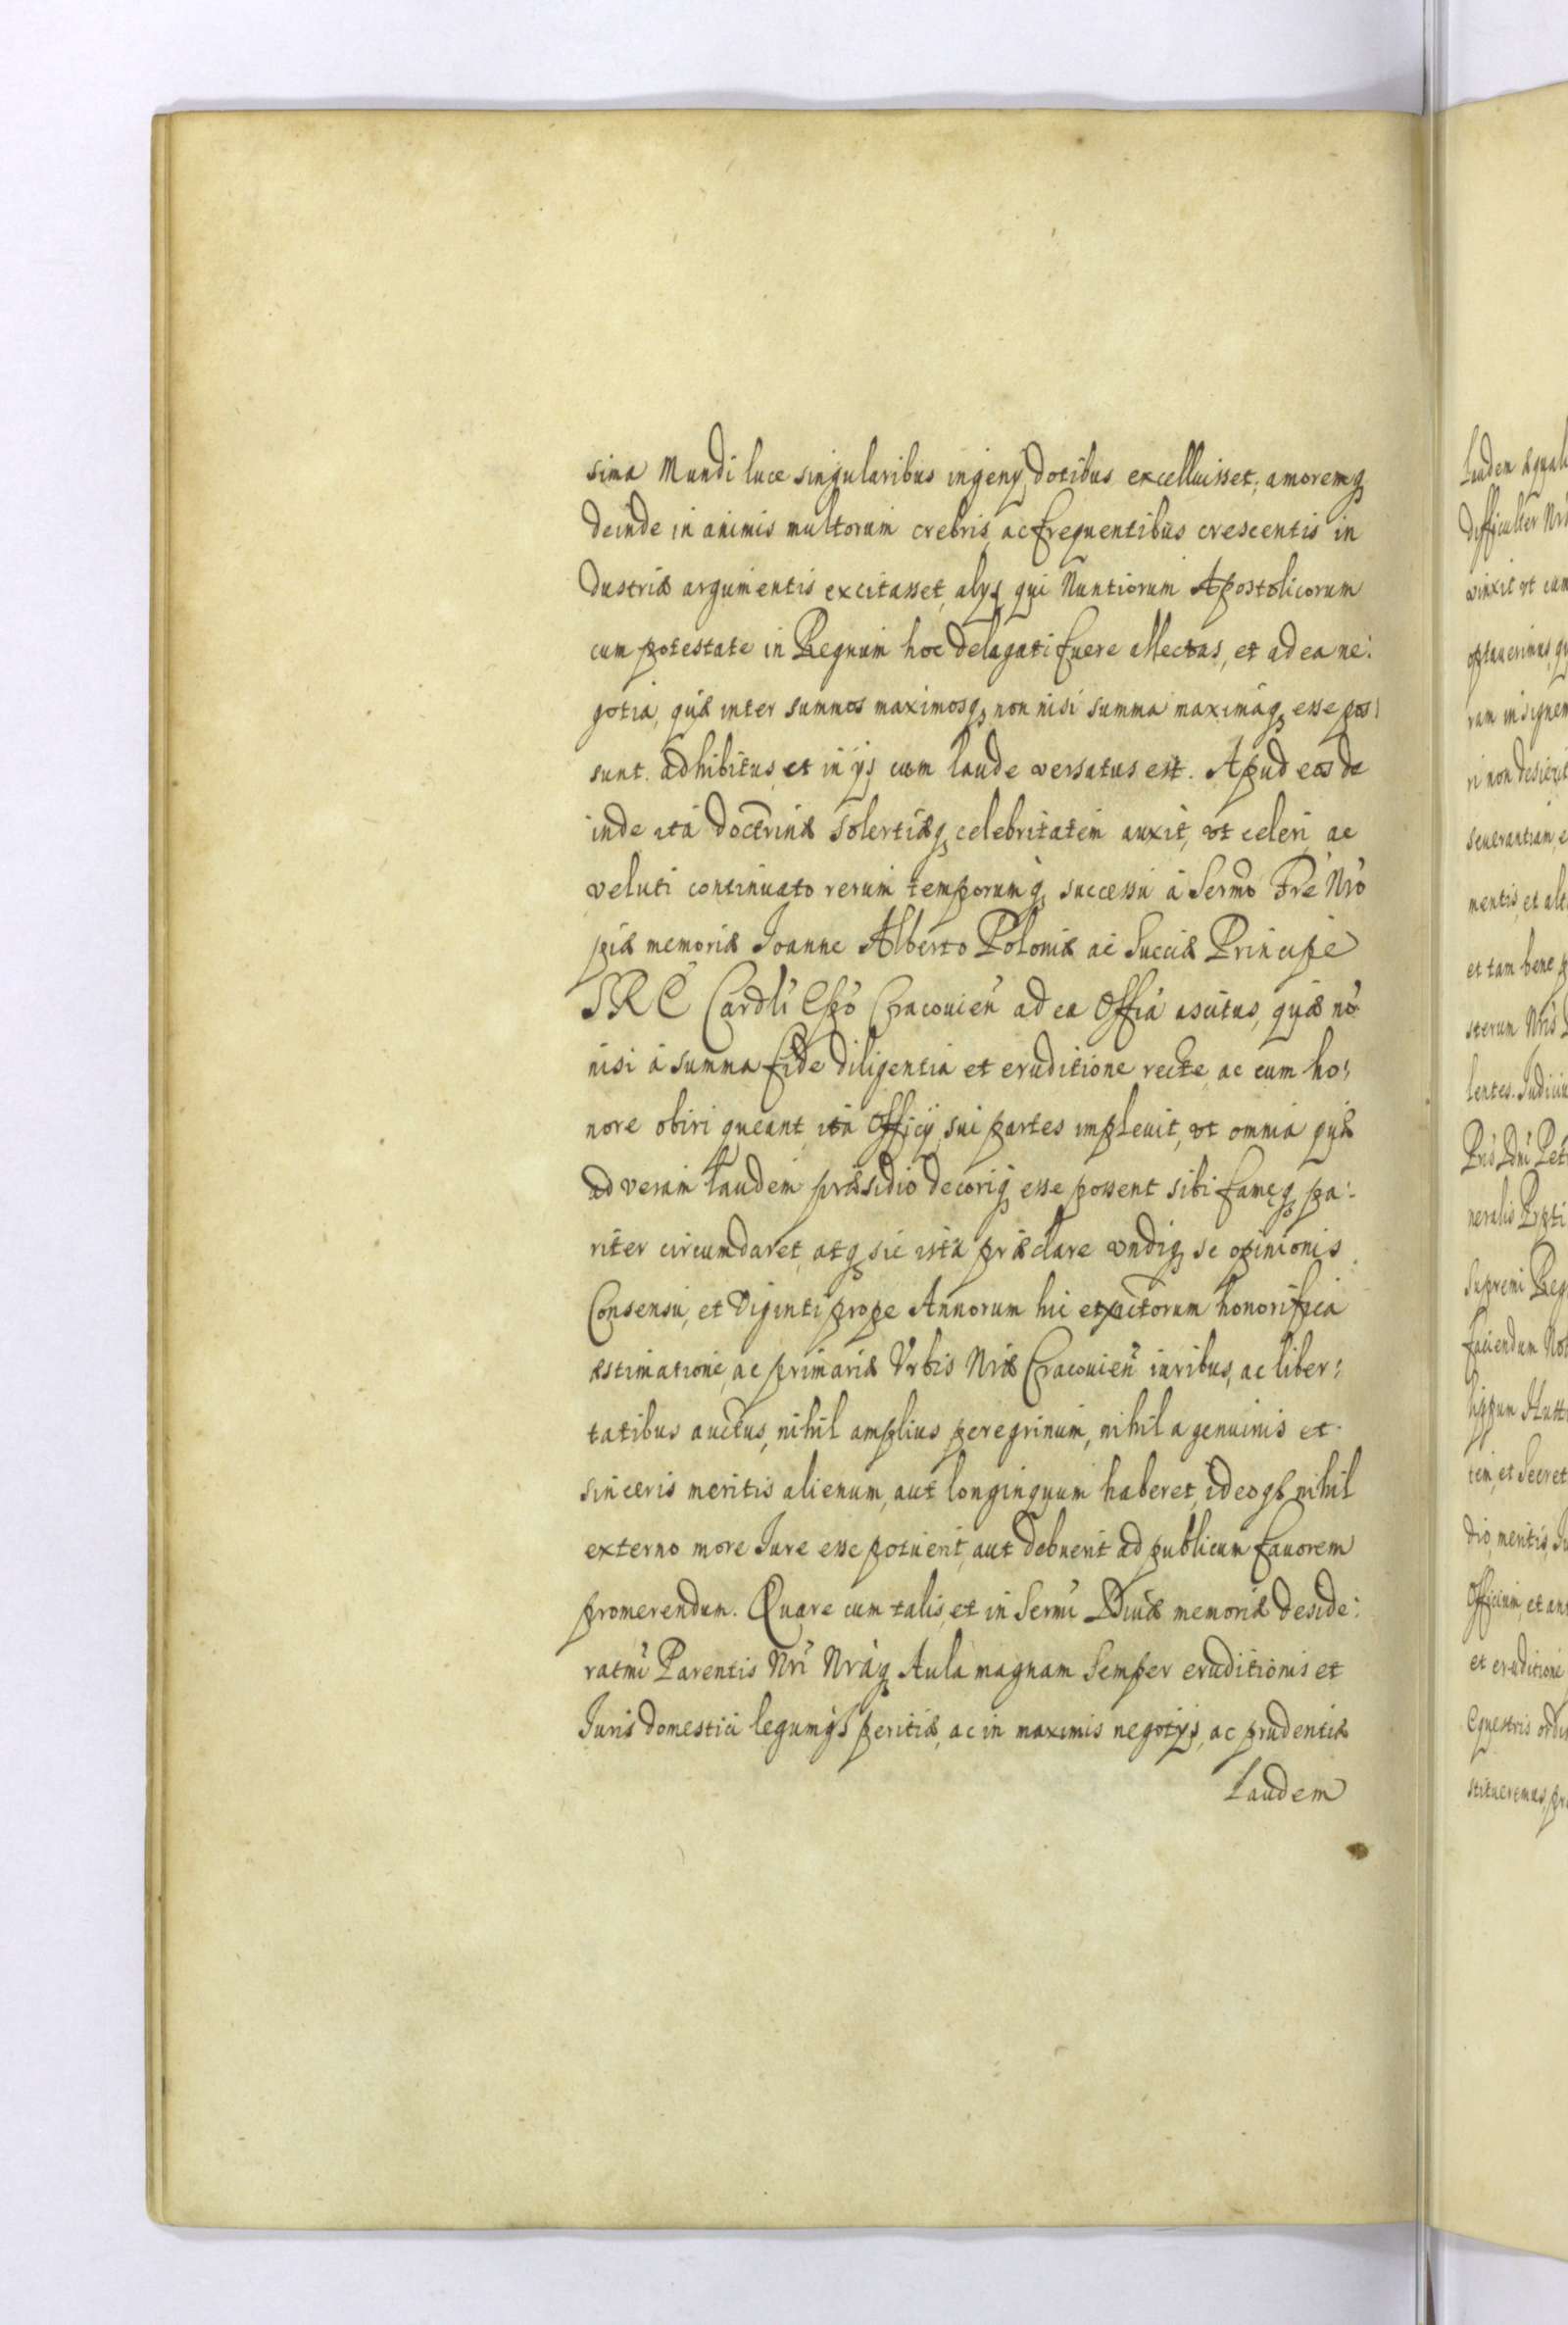 sima Mundi luce singularibus ingenÿ dotibus excelluisset, amoremq̨
deinde in animis multorum crebris, ac frequentibus crescentis in
dustriæ argumentis excitasset, alÿs qui Nuntiorum Apostolicorum
cum potestate in Regnum hoc delagati fuere allectus, et ad ea ne:
gotia, quæ inter summos maximosq̨ non nisi summa maximaq̨ esse pos:
sunt. adhibitus, et in ÿs cum laude versatus est. Apud eos de
inde ita doctrinæ solertiæq̨ celebritatem auxit, vt celeri, ac
veluti continuato rerum temporumq̨ successu à Sermo Fre Nro
piæ memoriæ Joanne Alberto Poloniæ ac Sueciæ Principe
S R E Cardli Epo Cracouien ad ea Offia ascitus, quæ no
nisi à summa fide diligentia et eruditione recte ac cum ho:
nore obiri queant, ita Officÿ sui partes impleuit, vt omnia quæ
ad veram laudem præsidio decoriq̨ esse possent sibi famęq̨ pa:
riter circumdaret, atq̨ sic ista præclare vndiq̨ se opinionis
Consensu, et Viginti prope Annorum hic exactorum honorifica
æstimatione, ac primariæ Vrbis Nræ Cracouien iuribus, ac liber:
tatibus auctus, nihil amplius peregrinum, nihil a genuinis et
sinceris meritis alienum, aut longinquum haberet, ideoq̨ nihil
externo more Jure esse potuerit, aut debuerit ad publicum fauorem
promerendum. Quare cum talis, et in Sermi Diuæ memoriæ deside:
ratmi Parentis Nri Nraq̨ Aula magnam Semper eruditionis et
Juris domestici legumq̨ peritiæ, ac in maximis negotÿs, ac prudentiæ
Laudem